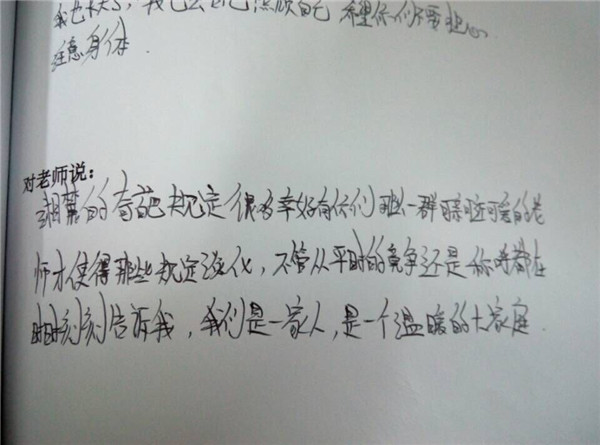 我长大了，我也会自己照顾自己 希望你们不要担心
注意身体.
对老师说：
的奇葩规定很多幸好有你们那么一群可爱的老
师才使得那些规定淡化，不管从平时的竞争还是称呼都在
时时刻刻告诉我，我们是一家人，是一个温暖的大家庭.